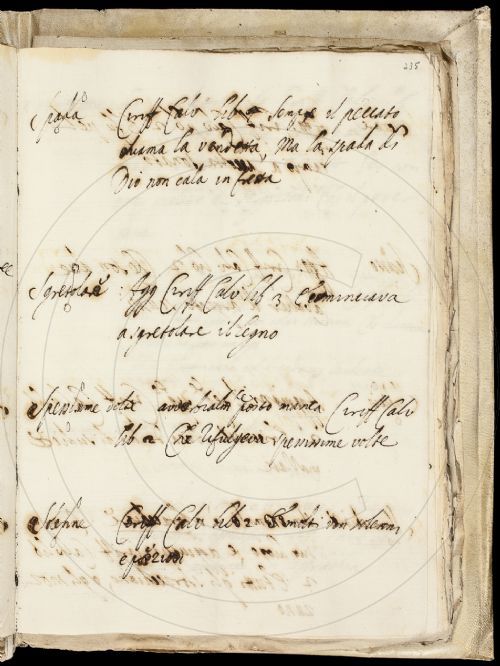 235
Spada Ciriff Calv lib 2 Sempre il peccato
chiama la vendetta, Ma la spada di
Dio non cala in fretta
Sgretolare Agg Ciriff Calv lib 3 E cominciava
a sgretolare il legno
Spessissime volte avverbialm posto manca Ciriff Calv
lib 2 Che rifulgeva spessissime volte
Ciriff Calv lib 2